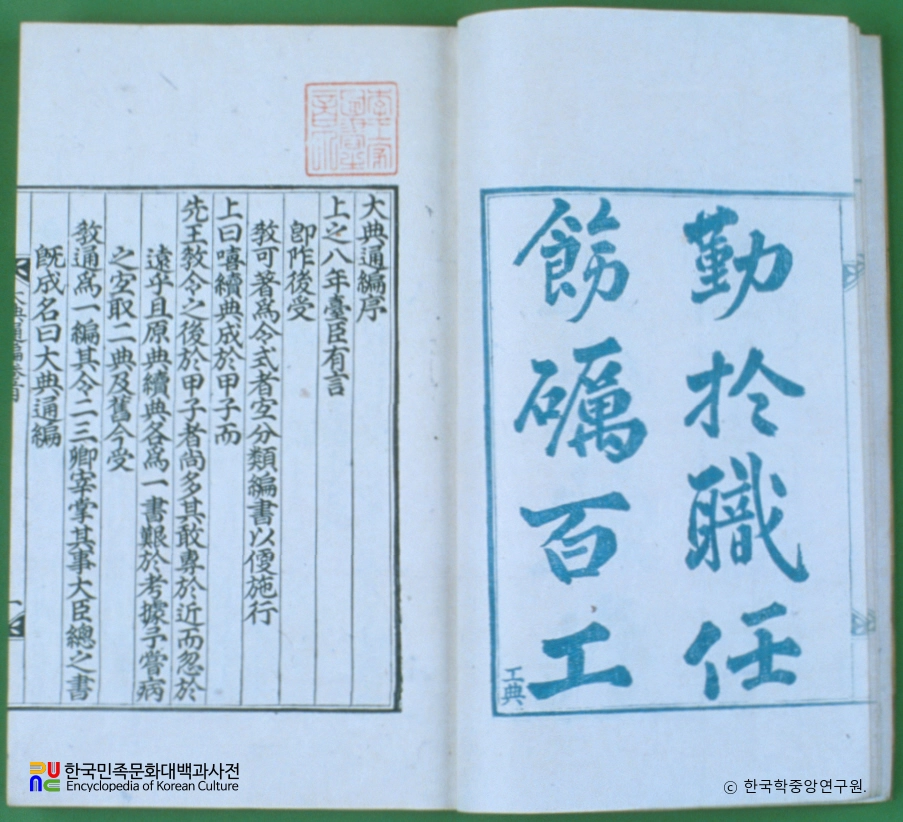 勤扵職任
飭礪百工
工典
大典通編序
上之八年臺臣有言
卽阼後受
敎可著爲令式者宜分類編書以便施行
上曰嘻續典成於甲子而
先王敎令之後於甲子者尙多其敢專於近而忽於
遠乎且原典續典各爲一書艱於考據予嘗病
之宜取二典及舊今受
敎通爲一編其令二三卿宰掌其事大臣總之書
旣成名曰大典通編
한국민족문화대백과사전
Encyclopedia of Korean Culture
ⓒ 한국학중앙연구원.